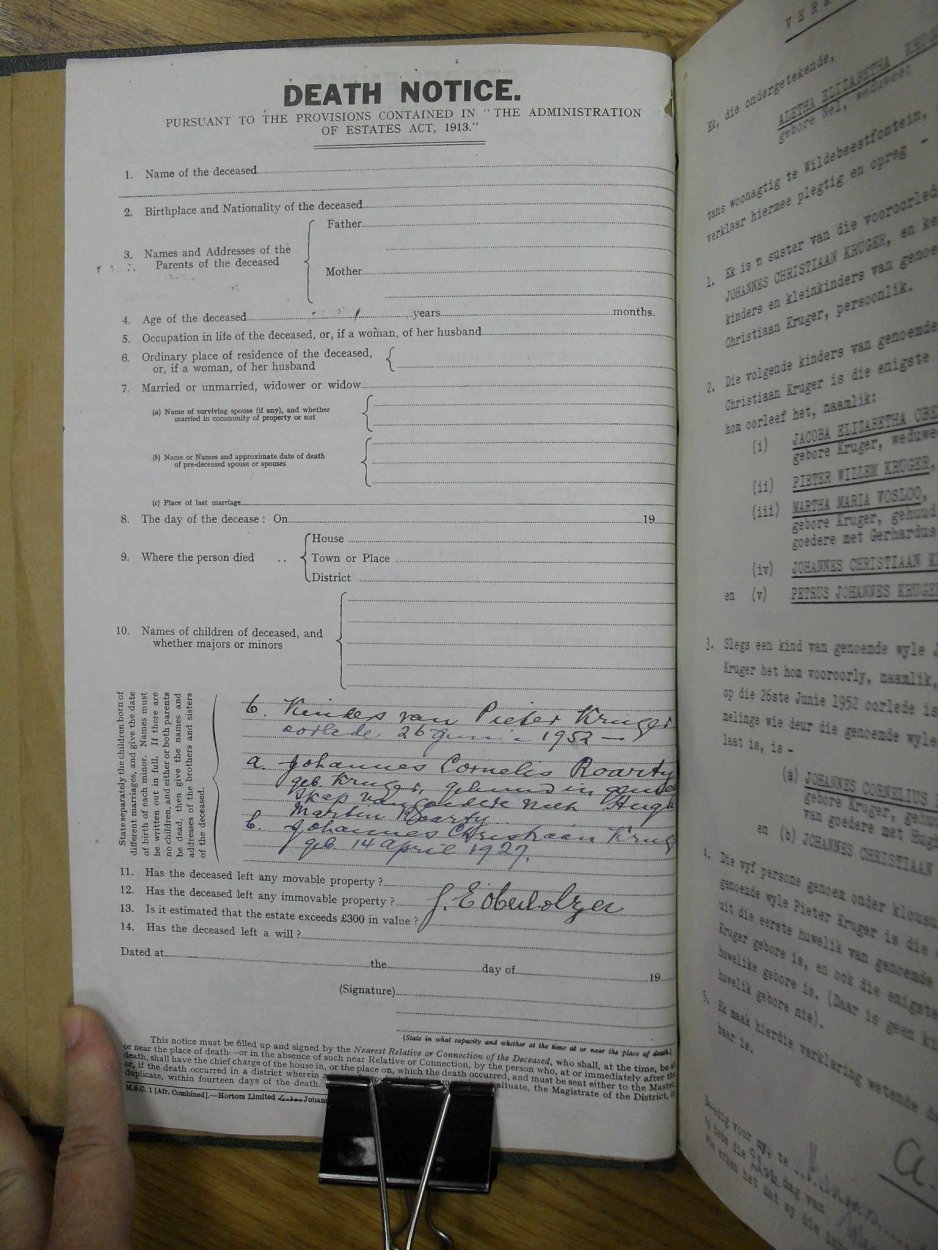 DEATH NOTICE.
PURSUANT TO THE PROVISIONS CONTAINED IN "THE ADMINISTRATION
OF ESTATES ACT, 1913."
1. Name of the deceased
2. Birthplace and Nationality of the deceased
Father
3. Names and Addresses of the
Parents of the deceased
Mother
4. Age of the deceased years months.
5. Occupation in life of the deceased, or, if a woman, of her husband
6. Ordinary place of residence of the deceased,
or, if a woman, of her husband
7. Married or unmarried, widower or widow
(a) Name of surviving spouse (if any), and whether
married in community of property or not
(b) Name or Names and approximate date of death
of pre-deceased spouse or spouses
(c) Place of last marriage
8. The day of the decease: On 19
9. Where the person died ..
House
Town or Place
District
10. Names of children of deceased, and
whether majors or minors
State separately the children born of
different marriages, and give the date
of birth of each minor. Names must
be written out in full. If there are
no children, and either or both parents
be dead, then give the names and
addresses of the brothers and sisters
of the deceased.
6. Kinders van Pieter Kruger
oorlede 26 Junie 1952 —
a. Johannes Cornelis Roarty
geb. Kruger, gehuud in
skap van goedere met Hugh
Martin Roarty
b. Johannes Christiaan Krug
geb. 14 April 1927.
11. Has the deceased left any movable property?
12. Has the deceased left any immovable property?
J. E Oberholzer
13. Is it estimated that the estate exceeds £300 in value?
14. Has the deceased left a will?
Dated at the day of 19
(Signature)
(State in what capacity and whether at the time at or near the place of death)
This notice must be filled up and signed by the Nearest Relative or Connection of the Deceased, who shall, at the time, be at
or near the place of death—or in the absence of such near Relative or Connection, by the person who, at or immediately after the
death, shall have the chief charge of the house in, or the place on, which the death occurred, and must be sent either to the Master,
or, if the death occurred in a district wherein situate, the Magistrate of the District, in
duplicate, within fourteen days of the death.
M.B.C. 1 [Afr. Combined].—Hortors Limited
VER
Ek, die ondergetekende,
ALETHA ELIZABETHA KRUG
gebore Nel, weduwee;
tans woonagtig te Wildebeestfontein,
verklaar hiermee plegtig en opreg -
1. Ek is 'n suster van die vooroorled
JOHANNES CHRISTIAAN KRUGER, en ke
kinders en kleinkinders van genoe
Christiaan Kruger, persoonlik.
2. Die volgende kinders van genoemde
Christiaan Kruger is die enigste
hom oorleef het, naamlik:
(i) JACOBA ELIZABETHA OBE
gebore Kruger, weduwe
(ii) PIETER WILLEM KRUGER,
(iii) MARTHA MARIA VOSLOO,
gebore Kruger, gehuud
goedere met Gerhardus
(iv) JOHANNES CHRISTIAAN K
en (v) PETRUS JOHANNES KRUGE
3. Slegs een kind van genoemde wyle J
Kruger het hom vooroorly, naamlik,
op die 26ste Junie 1952 oorlede is
melinge wie deur die genoemde wyle
laat is, is -
(a) JOHANNES CORNELIUS
gebore Kruger, gehu
van goedere met Hug
en (b) JOHANNES CHRISTIAAN
4. Die vyf persone genoem onder klousu
genoemde wyle Pieter Kruger is die
uit die eerste huwelik van genoemde
Kruger gebore is, en ook die enigste
huwelike gebore is. (Daar is geen ki
huwelik gebore nie).
5. Ek maak hierdie verklaring wetende d
baar is.